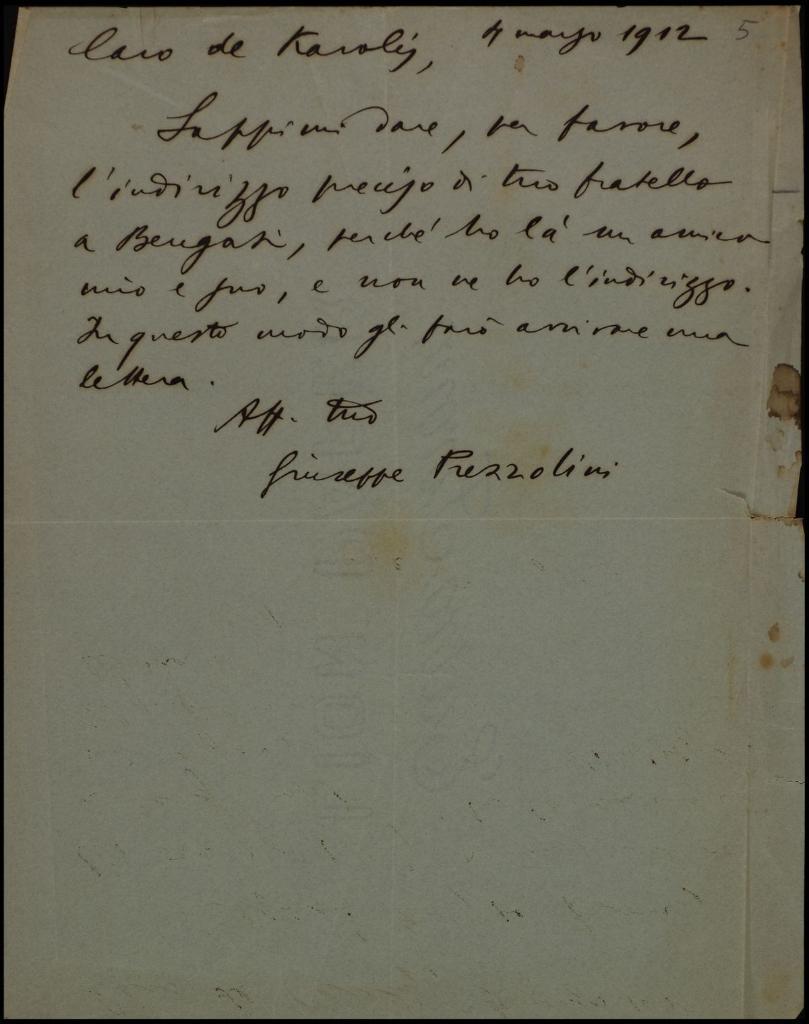 Caro de Karolis, 4 marzo 1912 5
Sappimi dare, per favore,
l'indirizzo preciso di tuo fratello
a Bengasi, perché ho là un amico
mio e suo, e non ne ho l'indirizzo.
In questo modo gli farò arrivare una
lettera.
Aff. tuo
Giuseppe Prezzolini